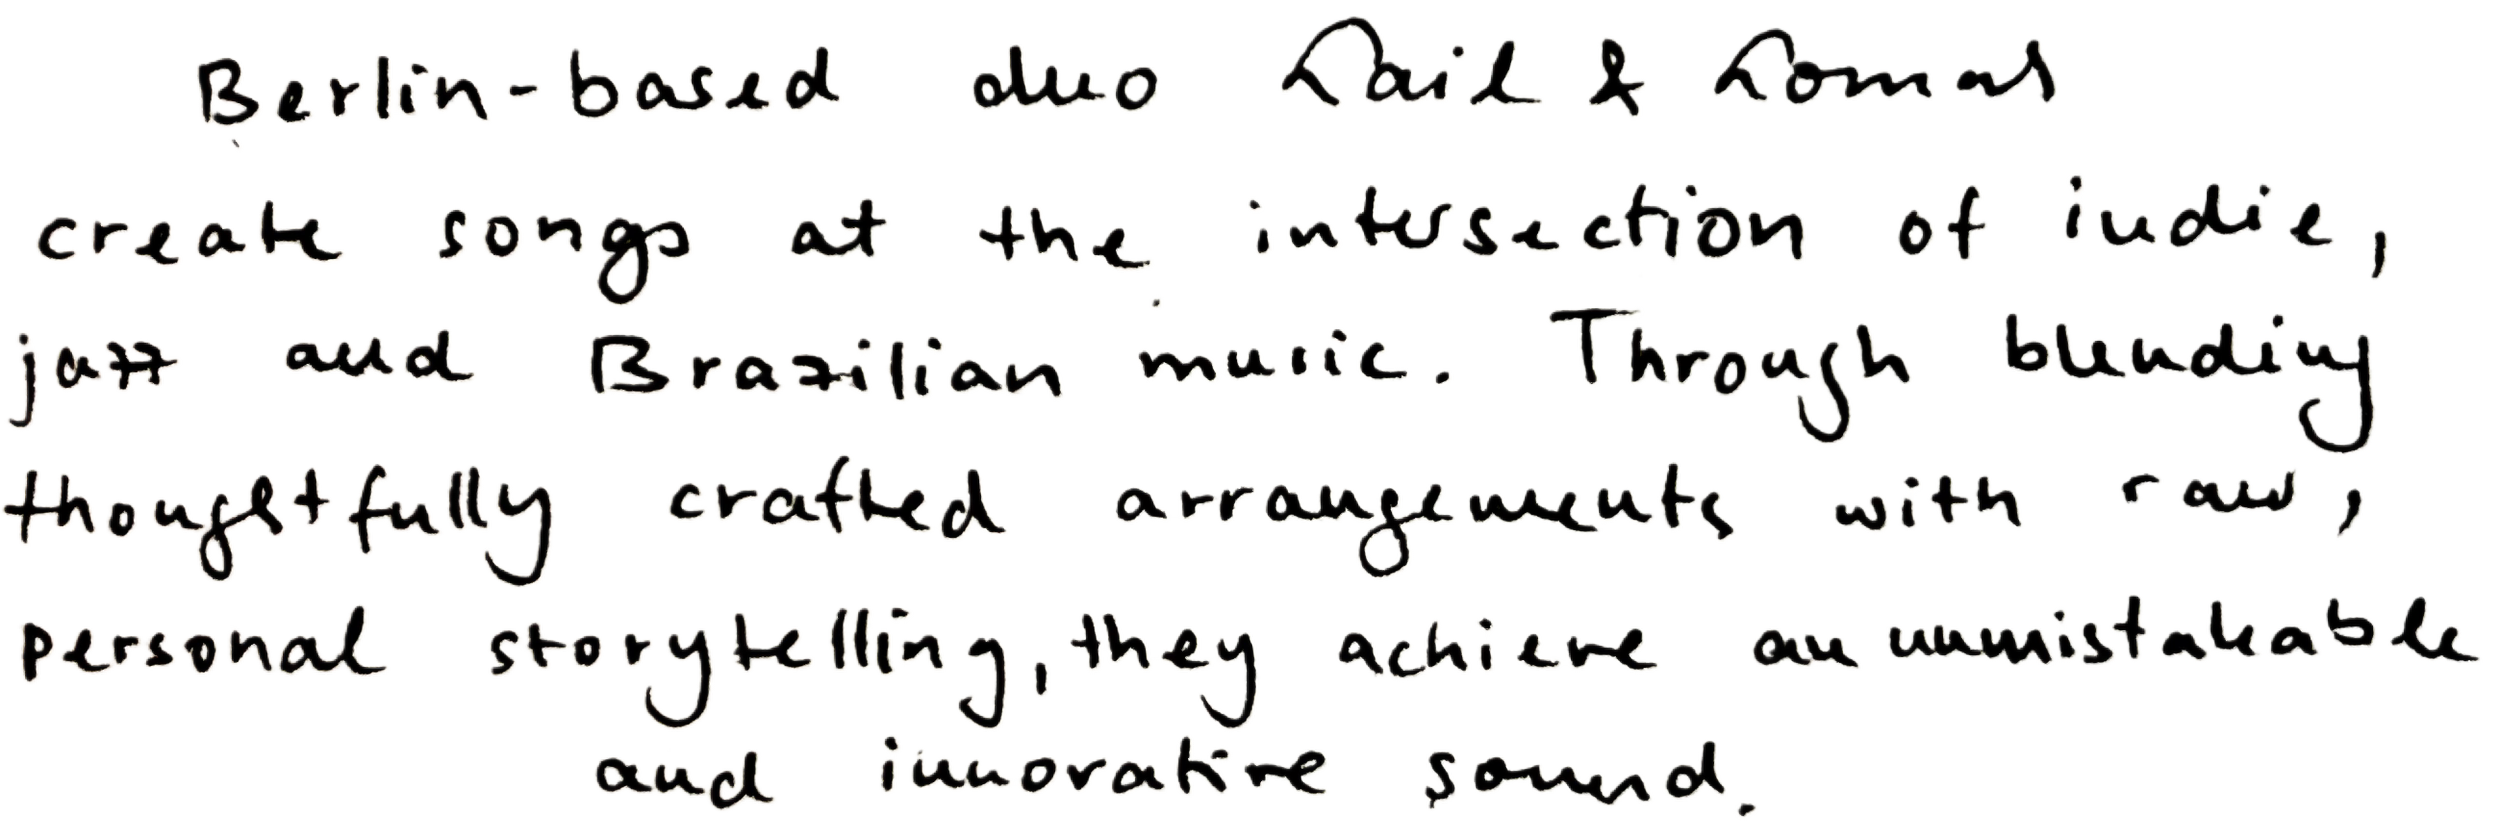 Berlin-based duo &
create songs at the intersection of indie,
jazz and Brazilian music. Through blending
thoughtfully crafted arrangements with raw,
personal storytelling, they achieve an unmistakeable
and innovative sound.